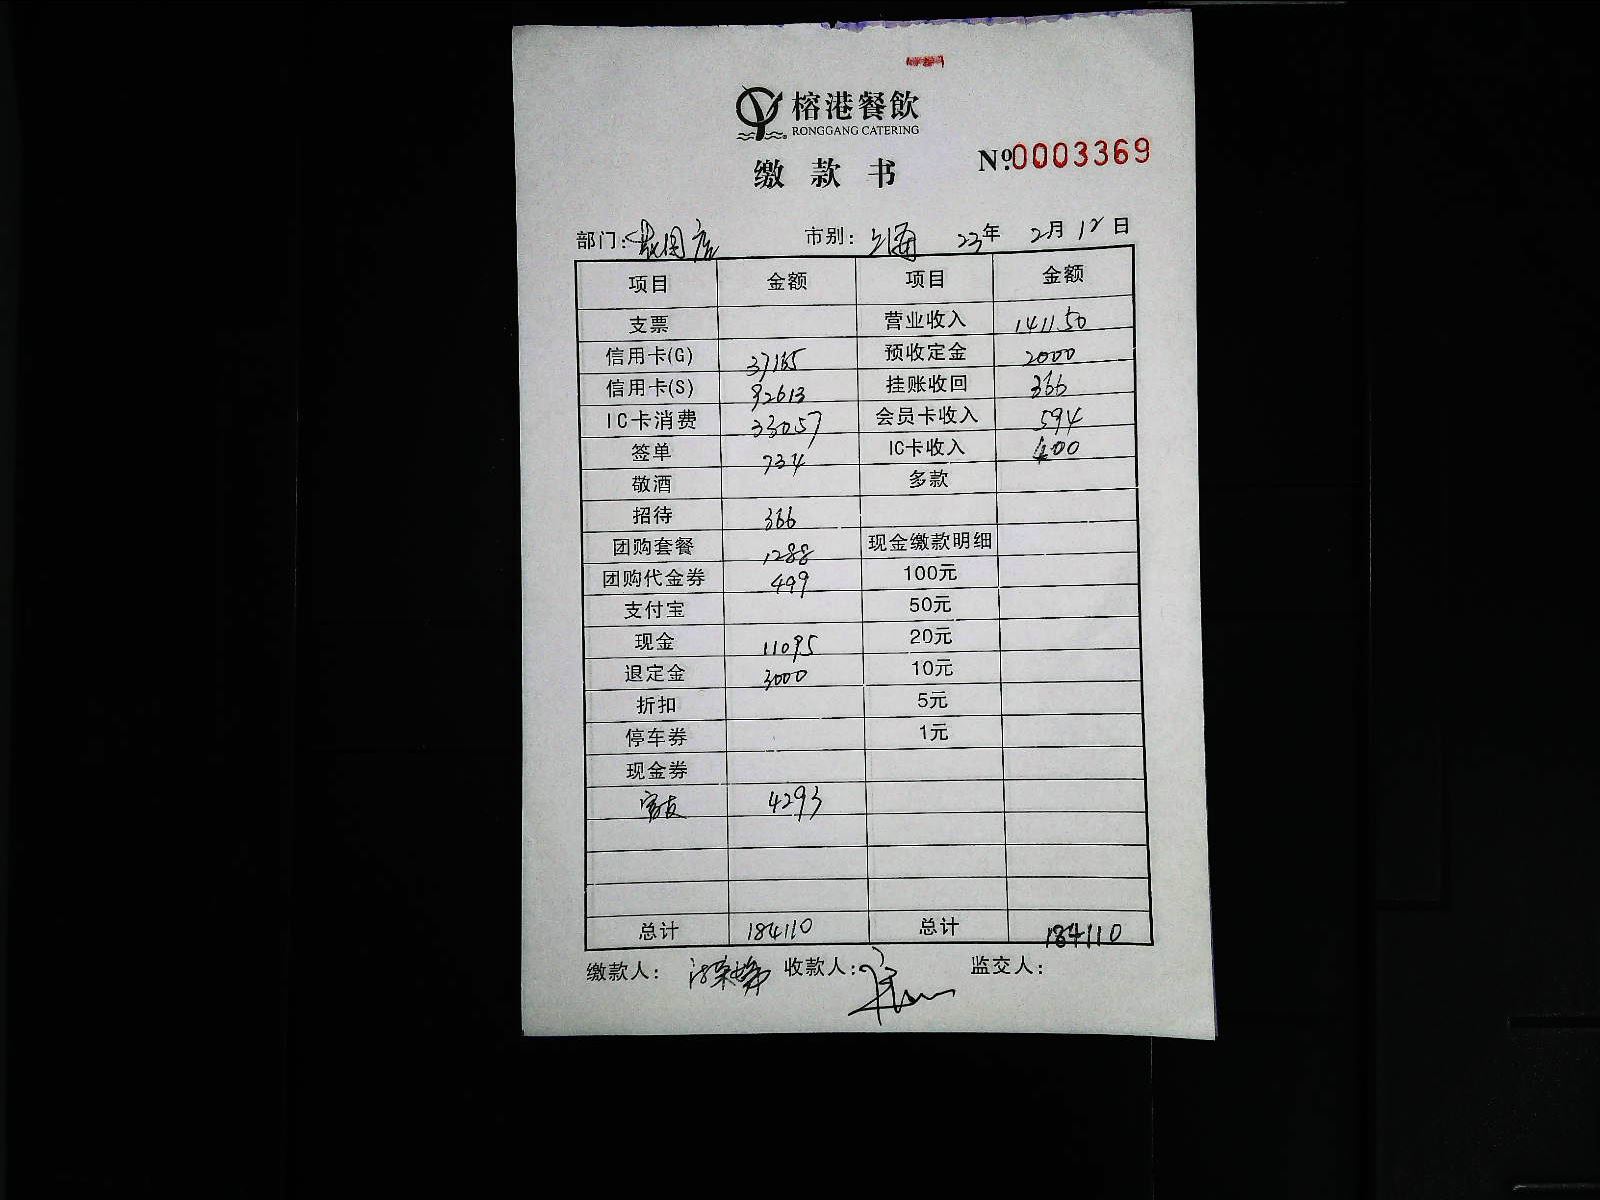 榕港餐飲
RONGGANG CATERING
缴款书
№0003369
部门: 店 市别: 上海 23年 2月 12日
项目 金额 项目 金额
支票 营业收入 141150
信用卡(G) 37165 预收定金 2000
信用卡(S) 92613 挂账收回 366
IC卡消费 33057 会员卡收入 594
签单 734 IC卡收入 400
敬酒 多款
招待 366
团购套餐 1288 现金缴款明细
团购代金券 499 100元
支付宝 50元
现金 11095 20元
退定金 3000 10元
折扣 5元
停车券 1元
现金券
4293
总计 184110 总计 184110
缴款人: 收款人: 监交人: